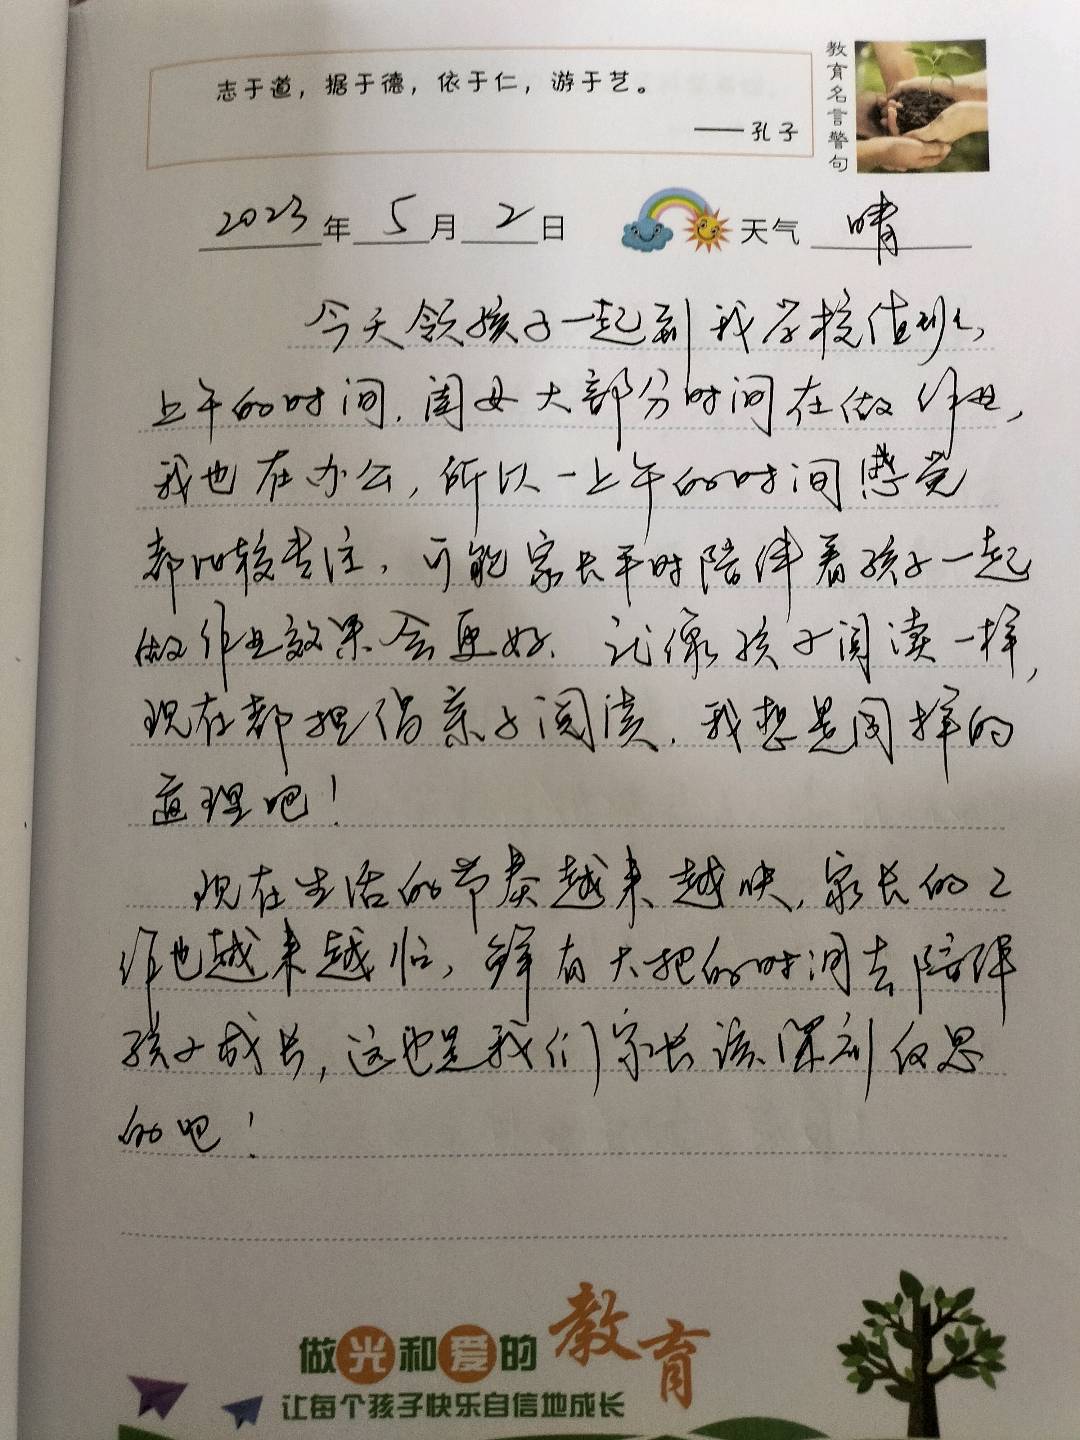 志于道，据于德，依于仁，游于艺。
——孔子
教育名言警句
2023年 5月 2日 天气 晴
今天领孩子一起到我学校值班，
上午的时间，闺女大部分时间在做作业，
我也在办公，所以一上午的时间感觉
都比较专注，可能家长平时陪伴着孩子一起
做作业效果会更好。就像孩子阅读一样，
现在都提倡亲子阅读，我想是同样的
道理吧！
现在生活的节奏越来越快，家长的工
作也越来越忙，鲜有大把的时间去陪伴
孩子成长，这也是我们家长该深刻反思
的吧！
做光和爱的教育
让每个孩子快乐自信地成长